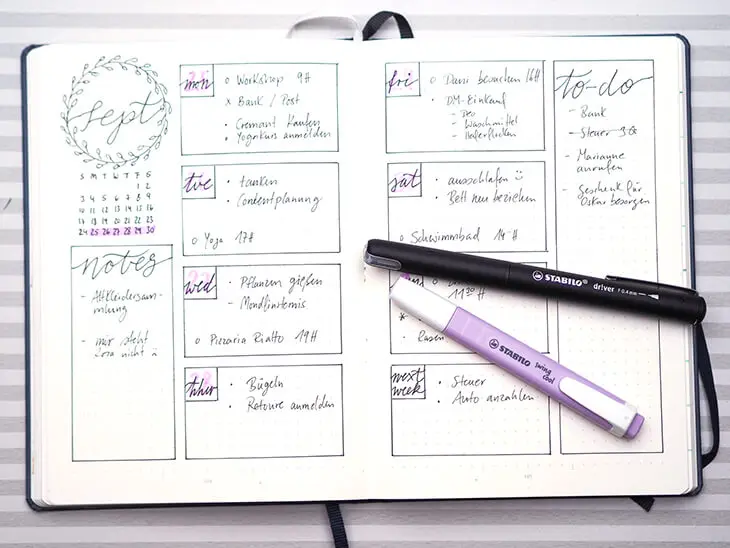 sept
S M T W T F S
1 2
3 4 5 6 7 8 9
10 11 12 13 14 15 16
17 18 19 20 21 22 23
24 25 26 27 28 29 30
notes
- Altkleidersam-
mlung
- mir steht
rosa nicht
mon
o Workshop 9h
x Bank / Post
• Cremant kaufen
• Yogakurs anmelden
tue
• tanken
• Contentplanung
o Yoga 17h
wed
• Pflanzen gießen
- Mondfinsternis
o Pizzaria Rialto 19h
thur
• Bügeln
• Retoure anmelden
fri
o Dani besuchen 16h
• DM-Einkauf
- Deo
- Waschmittel
- Haferflocken
sat
• ausschlafen
• Bett neu beziehen
o Schwimmbad 14h
11:30 H
Rasen
next
week
• Steuer
• Auto anzahlen
to-do
- Bank
- Steuer
- Marianne
anrufen
- Geschenk für
Oskar besorgen
STABILO driver F 0,4 mm
STABILO swing
cool